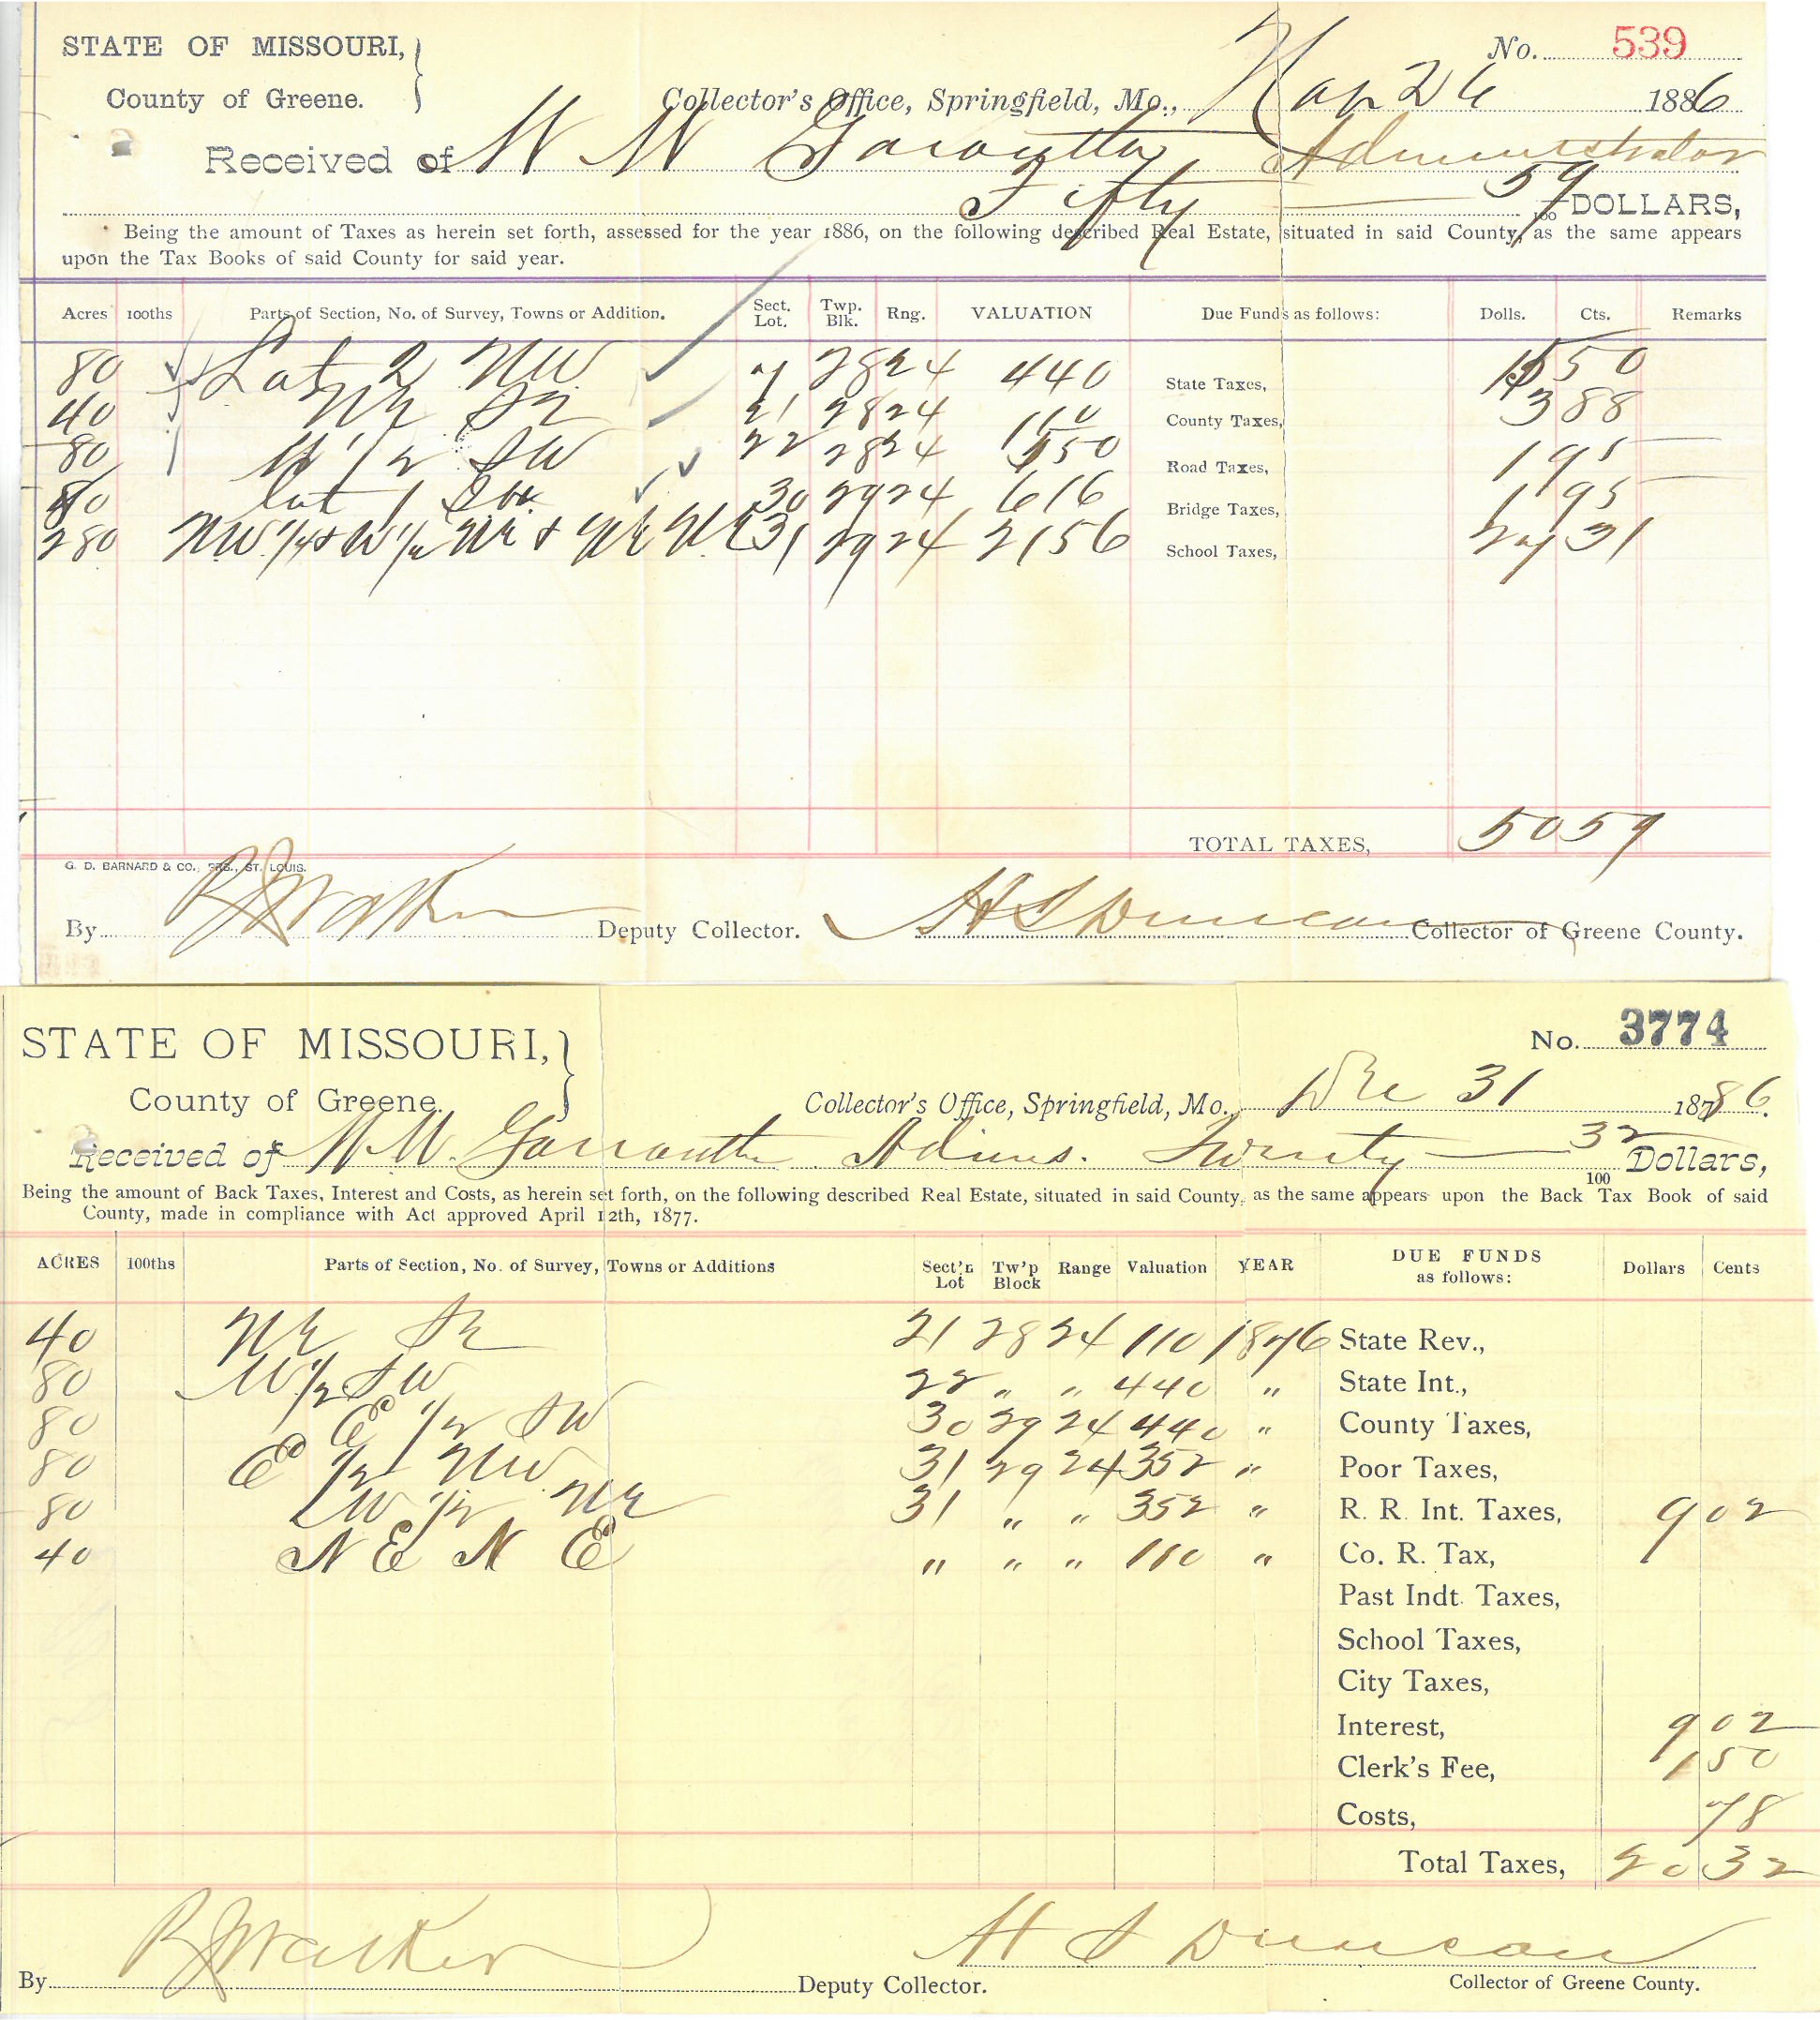 STATE OF MISSOURI, No. 539
County of Greene. Collector's Office, Springfield, Mo., Nov 26 1886
Received of W W Garoutte Administrator
Fifty 59/100 DOLLARS,
Being the amount of Taxes as herein set forth, assessed for the year 1886, on the following described Real Estate, situated in said County, as the same appears
upon the Tax Books of said County for said year.
Acres 100ths Parts of Section, No. of Survey, Towns or Addition. Sect. Lot. Twp. Blk. Rng. VALUATION Due Funds as follows: Dolls. Cts. Remarks
80 Lot 2 NW 7 28 24 440 State Taxes, 15 50
40 NE SE 21 28 24 110 County Taxes, 3 88
80 W 1/2 SW 22 28 24 550 Road Taxes, 1 95
80 Lot 1 SW 30 29 24 616 Bridge Taxes, 1 95
280 NW 1/4 & W 1/2 NE & NE NE 31 29 24 2156 School Taxes, 27 31
TOTAL TAXES, 50 59
G. D. BARNARD & CO., PRS., ST. LOUIS.
By R J Walker Deputy Collector. H S Duncan Collector of Greene County.
STATE OF MISSOURI, No. 3774
County of Greene. Collector's Office, Springfield, Mo., Dec 31 1886.
Received of W W. Garroutte Admns. Twenty 32/100 Dollars,
Being the amount of Back Taxes, Interest and Costs, as herein set forth, on the following described Real Estate, situated in said County, as the same appears upon the Back Tax Book of said
County, made in compliance with Act approved April 12th, 1877.
ACRES 100ths Parts of Section, No. of Survey, Towns or Additions Sect'n Lot Tw'p Block Range Valuation YEAR DUE FUNDS as follows: Dollars Cents
40 NE SE 21 28 24 110 1876 State Rev.,
80 W 1/2 SW 22 " " 440 " State Int.,
80 E 1/2 SW 30 29 24 440 " County Taxes,
80 E 1/2 NW 31 29 24 352 " Poor Taxes,
80 W 1/2 NE 31 " " 352 " R. R. Int. Taxes, 9 02
40 N E N E " " " 110 " Co. R. Tax,
Past Indt. Taxes,
School Taxes,
City Taxes,
Interest, 9 02
Clerk's Fee, 1 50
Costs, 78
Total Taxes, 20 32
By R J Walker Deputy Collector. H S Duncan Collector of Greene County.